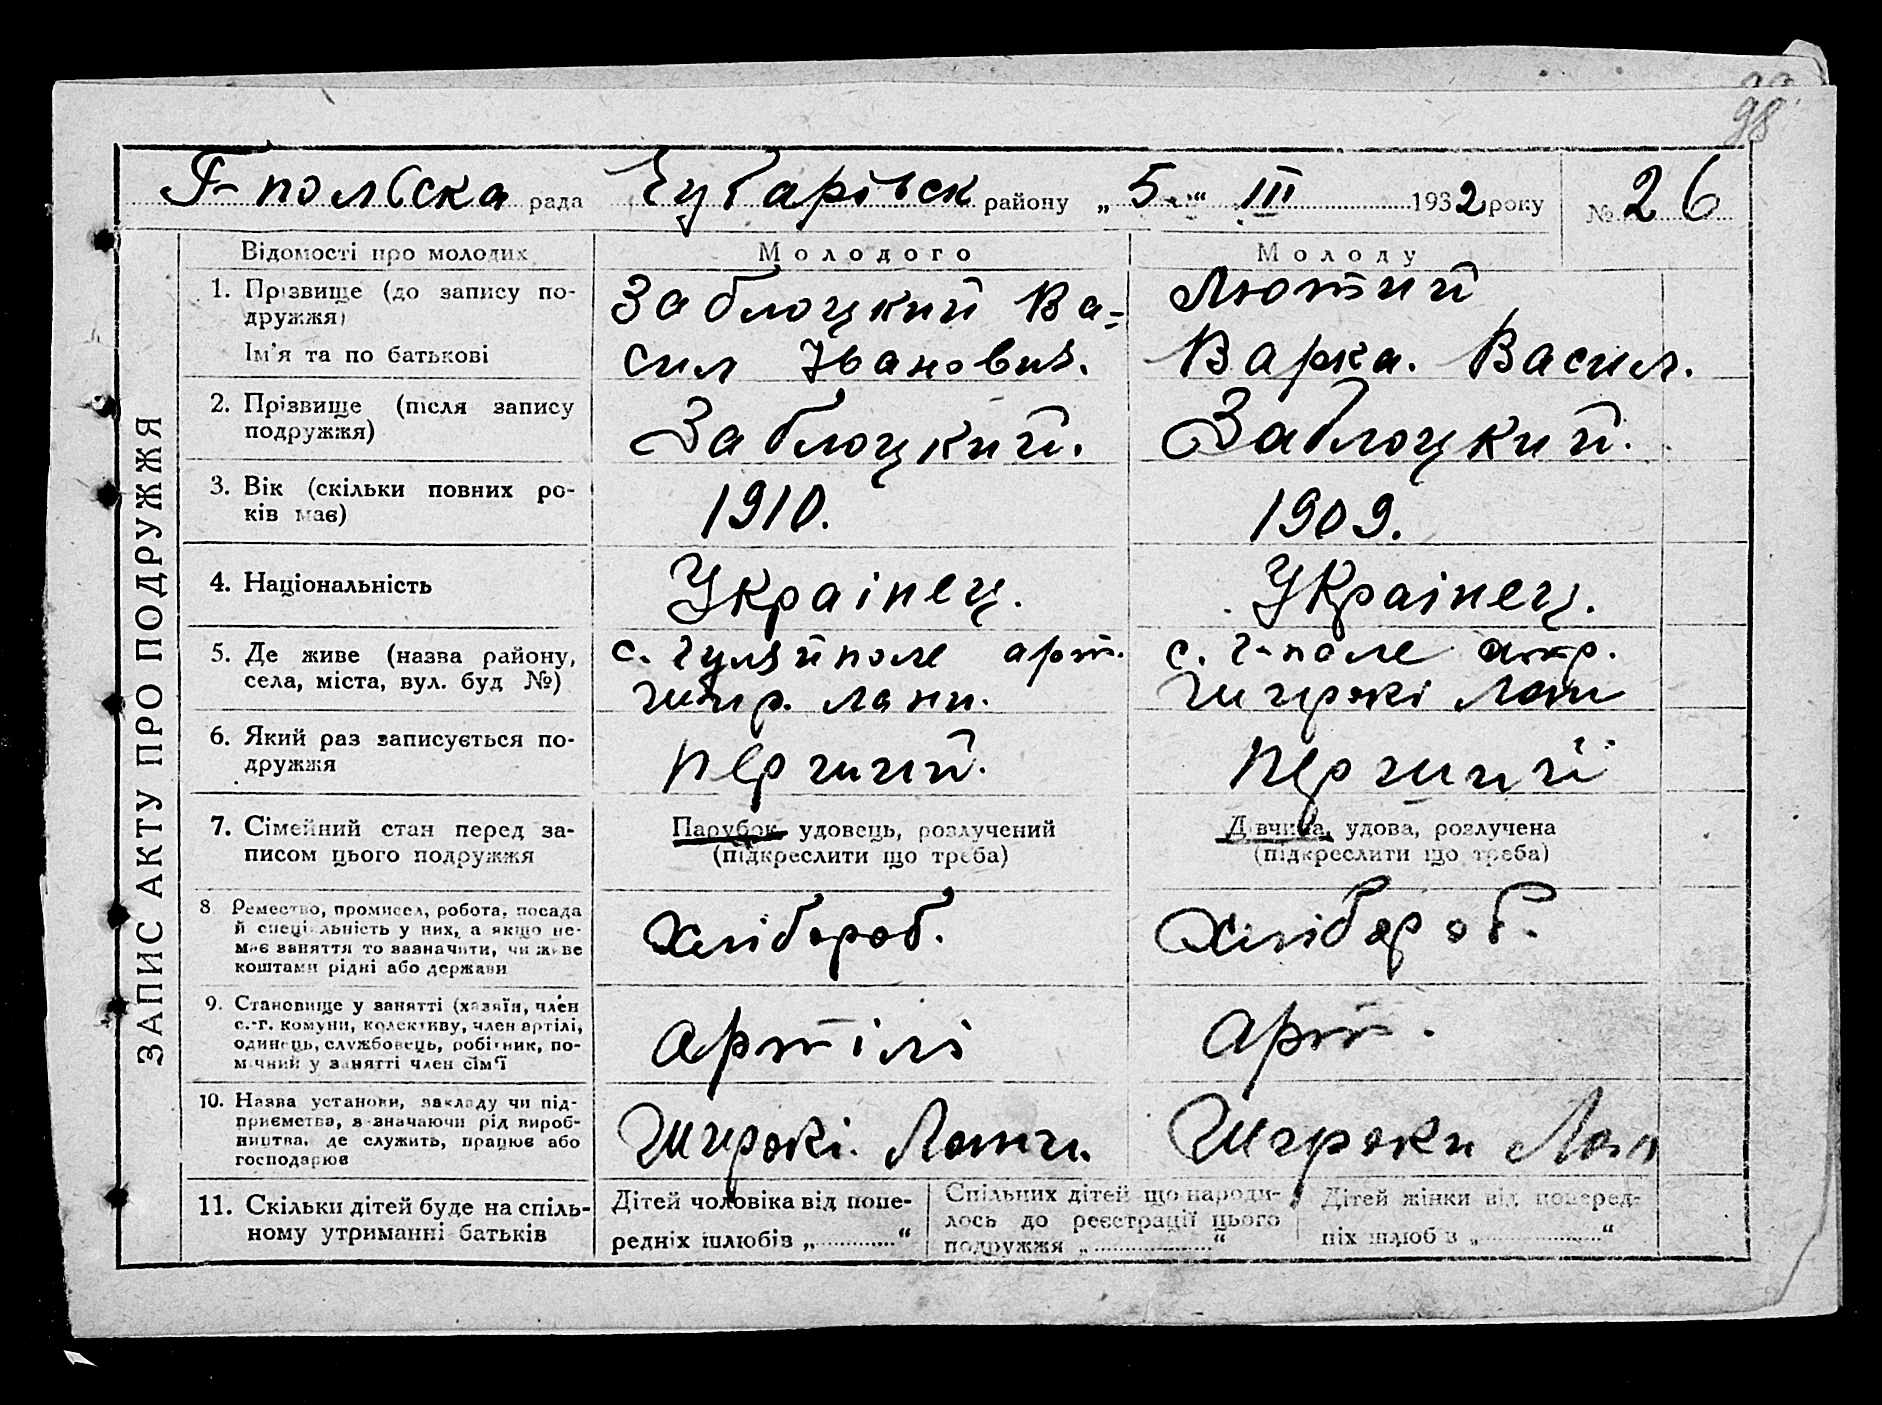 98
Г-польска рада Чубарівськ району „5" III 1932 року № 26
ЗАПИС АКТУ ПРО ПОДРУЖЖЯ
Відомості про молодих
Молодого
Молоду
1. Прізвище (до запису по-
дружжя)
Ім'я та по батькові
Заблоцкий Ва=
сил Іванович.
Лютий
Варка. Васил.
2. Прізвище (після запису
подружжя)
Заблоцкий.
Заблоцкий.
3. Вік (скільки повних ро-
ків має)
1910.
1909.
4. Національність
Украінец.
Украінец.
5. Де живе (назва району,
села, міста, вул. буд №)
с. Гуляйполе арт.
шир. лани.
с. Г-поле
Широкі Лани
6. Який раз записується по-
дружжя
перший.
перший
7. Сімейний стан перед за-
писом цього подружжя
Парубок, удовець, розлучений
(підкреслити що треба)
Дівчина, удова, розлучена
(підкреслити що треба)
8. Ремество, промисел, робота, посада
й спеціяльність у них, а якщо не-
має заняття то зазначити, чи живе
коштами рідні або держави
Хлібороб.
Хлібороб.
9. Становище у занятті (хазяїн, член
с.-г. комуни, колективу, член артілі,
одинець, службовець, робітник, по-
мічний у занятті член сім'ї
Артілі
Арт.
10. Назва установи, закладу чи під-
приємства, зазначаючи рід вироб-
ництва, де служить, працює або
господарює
Широкі. Лани.
Широки Лан
11. Скільки дітей буде на спіль-
ному утриманні батьків
Дітей чоловіка від попе-
редніх шлюбів „ “
Спільних дітей що народи-
лось до реєстрації цього
подружжя „ “
Дітей жінки від поперед-
ніх шлюбів „ “